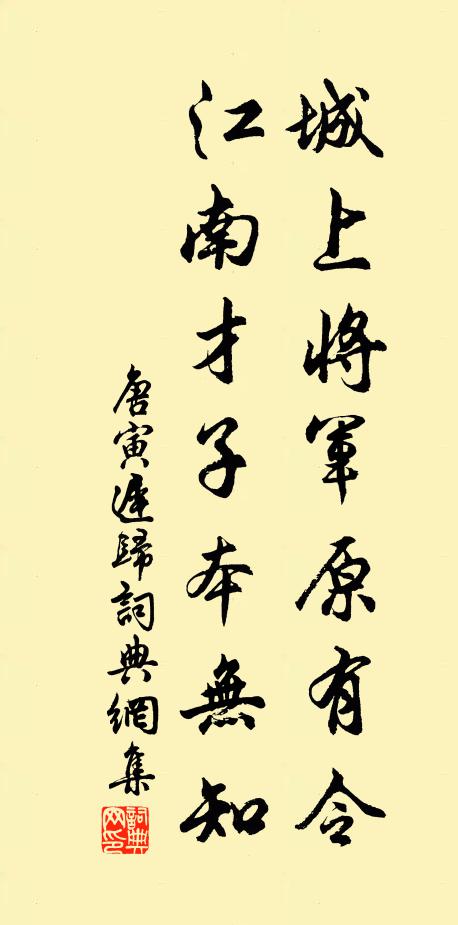 城上將軍原有令
江南才子本無知
唐寅遲歸詞典網集
詞典網印